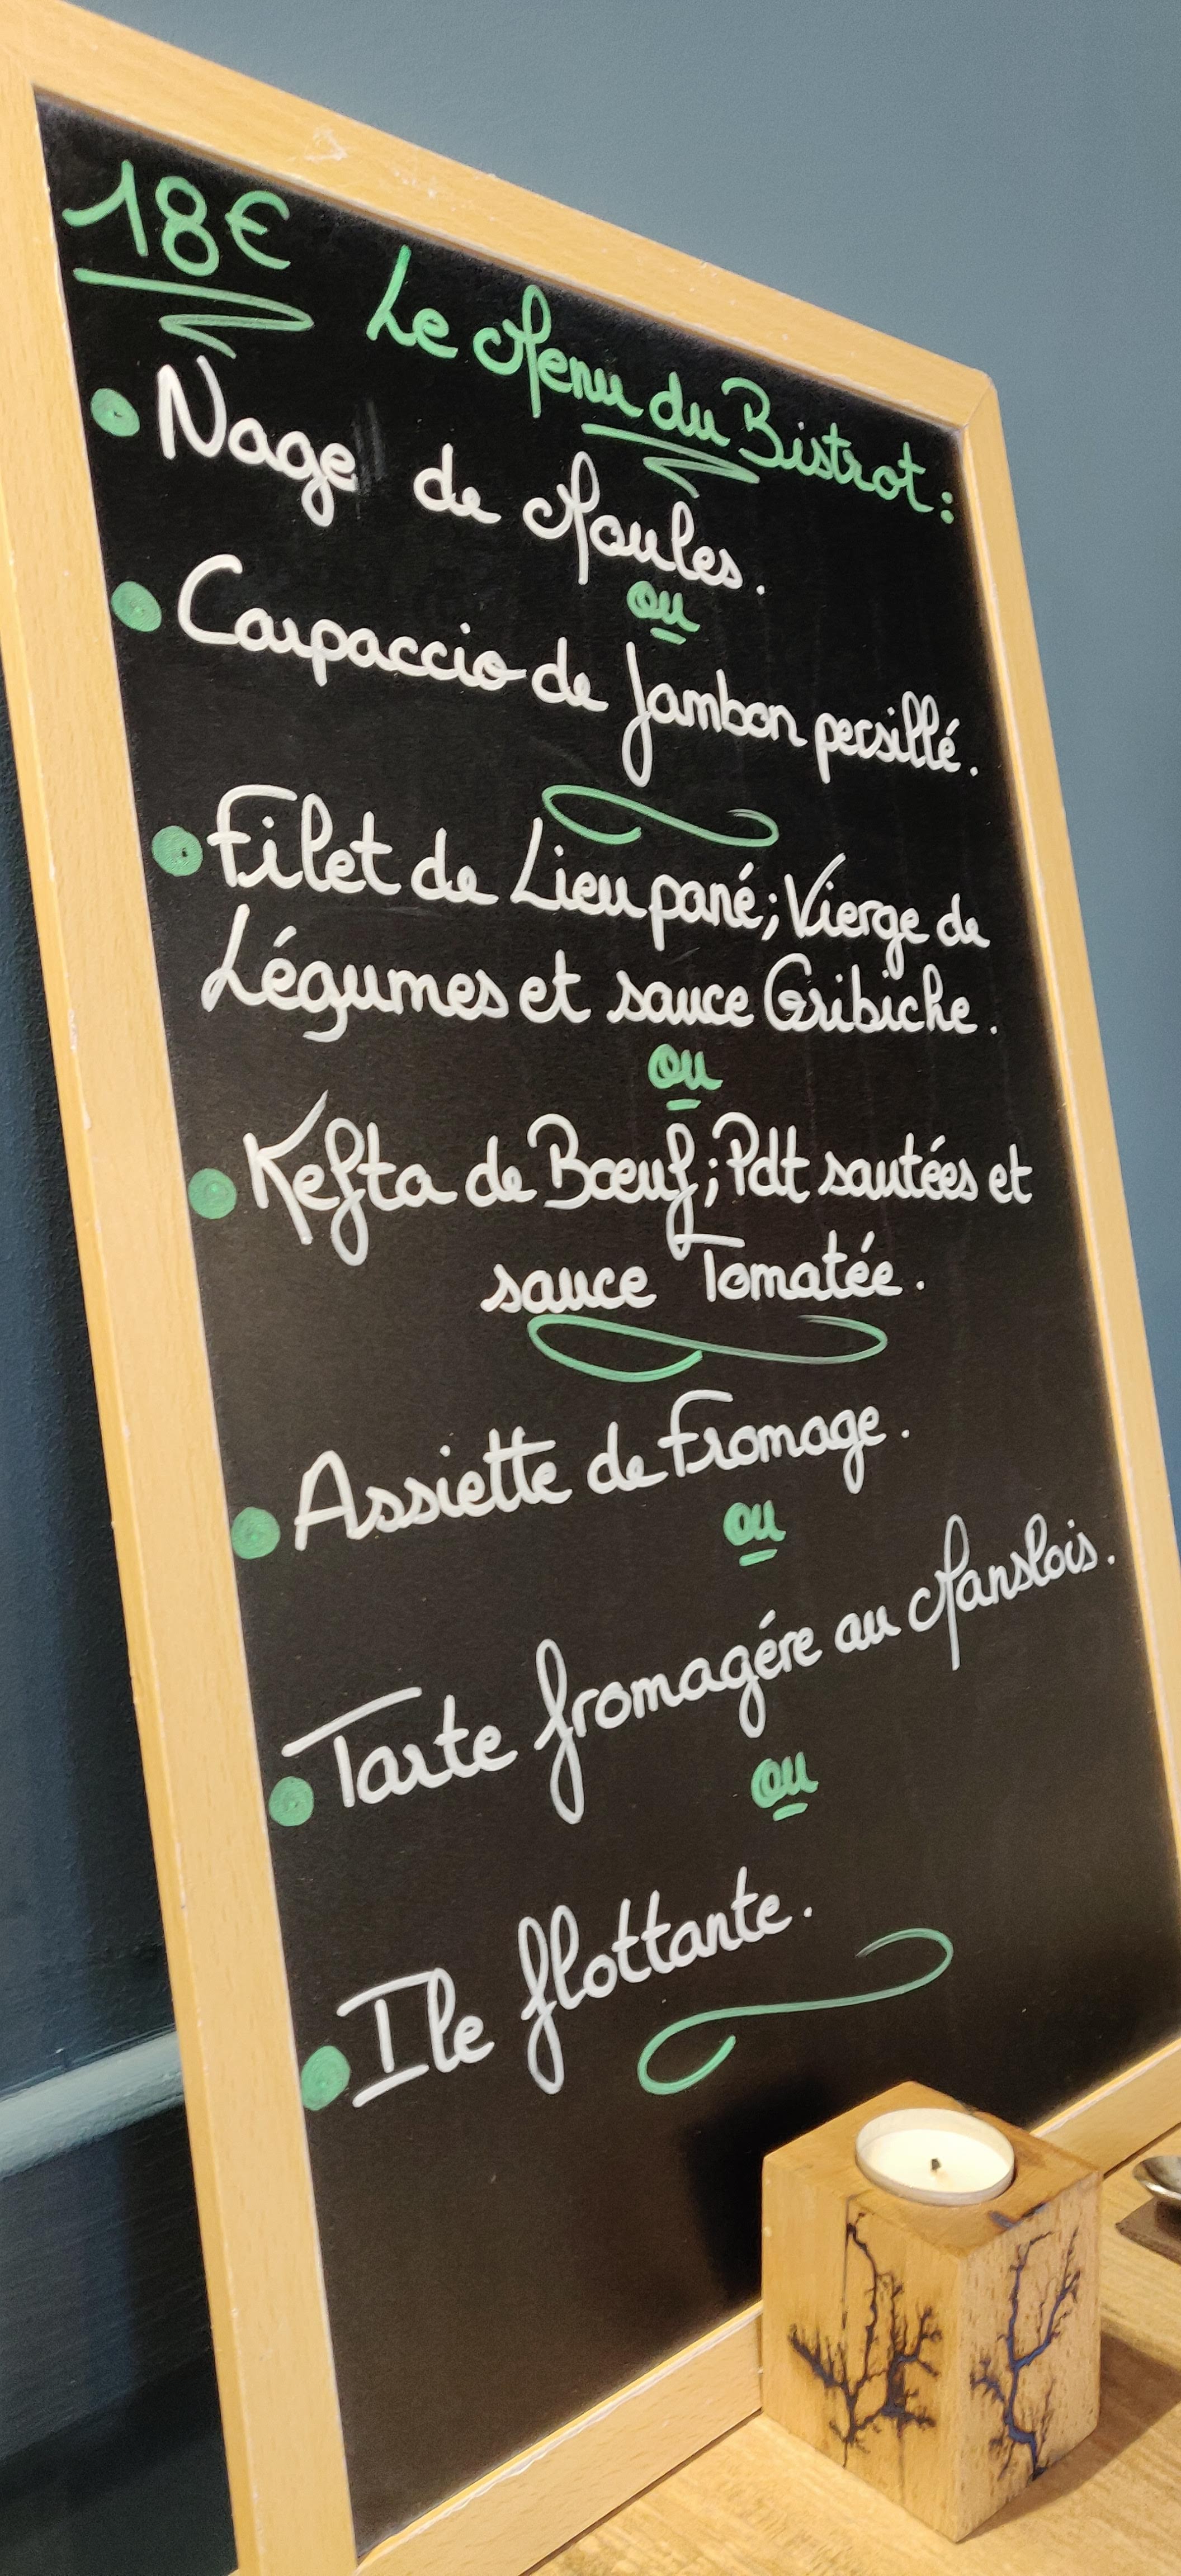 18€
Le Menu du Bistrot :
Nage de Moules.
ou
Carpaccio de Jambon persillé.
Filet de Lieu pané; Vierge de
Légumes et sauce Gribiche.
ou
Kefta de Bœuf; Pdt sautées et
sauce Tomatée.
Assiette de Fromage.
ou
Tarte fromagére au Manslois.
ou
Ile flottante.